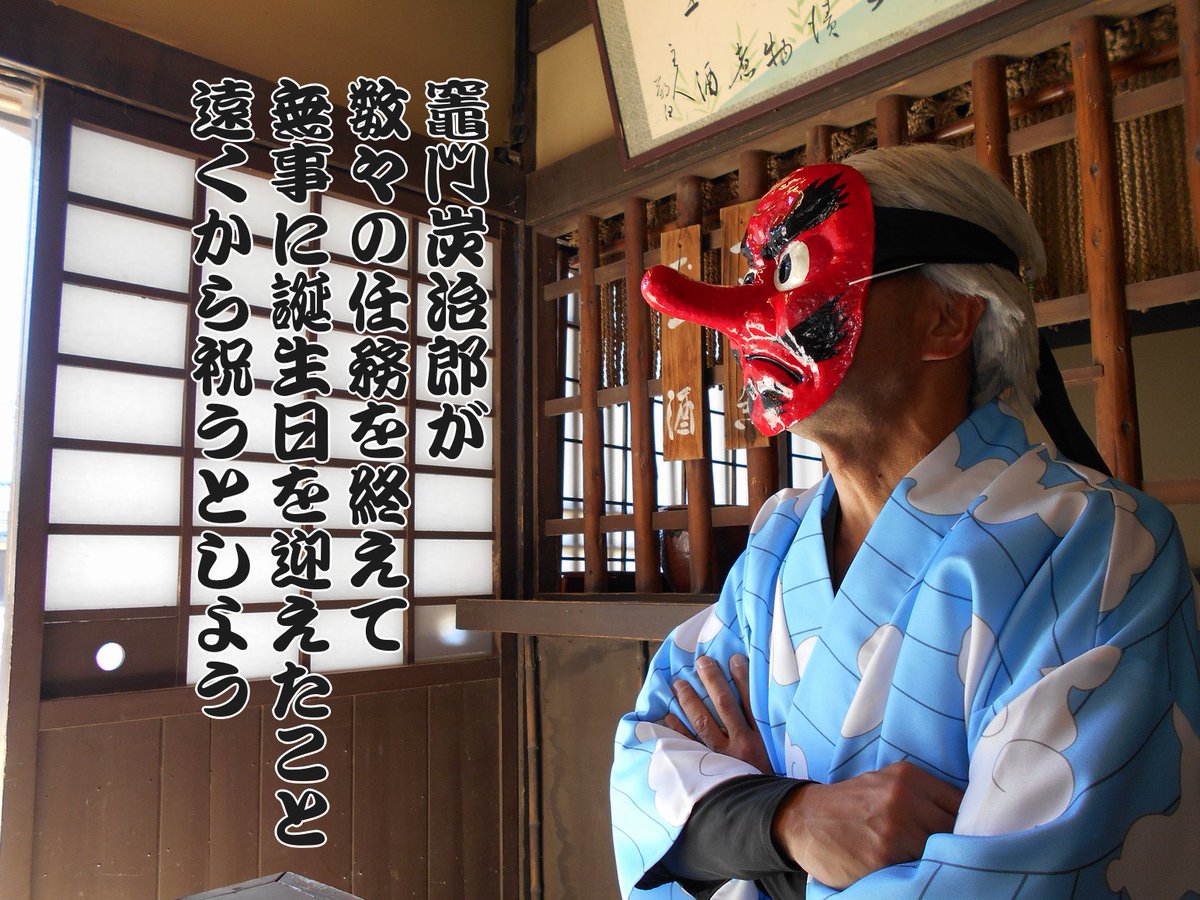 竈門炭治郎が
数々の任務を終えて
無事に誕生日を迎えたこと
遠くから祝うとしよう
漬物
煮酒
主人
酒